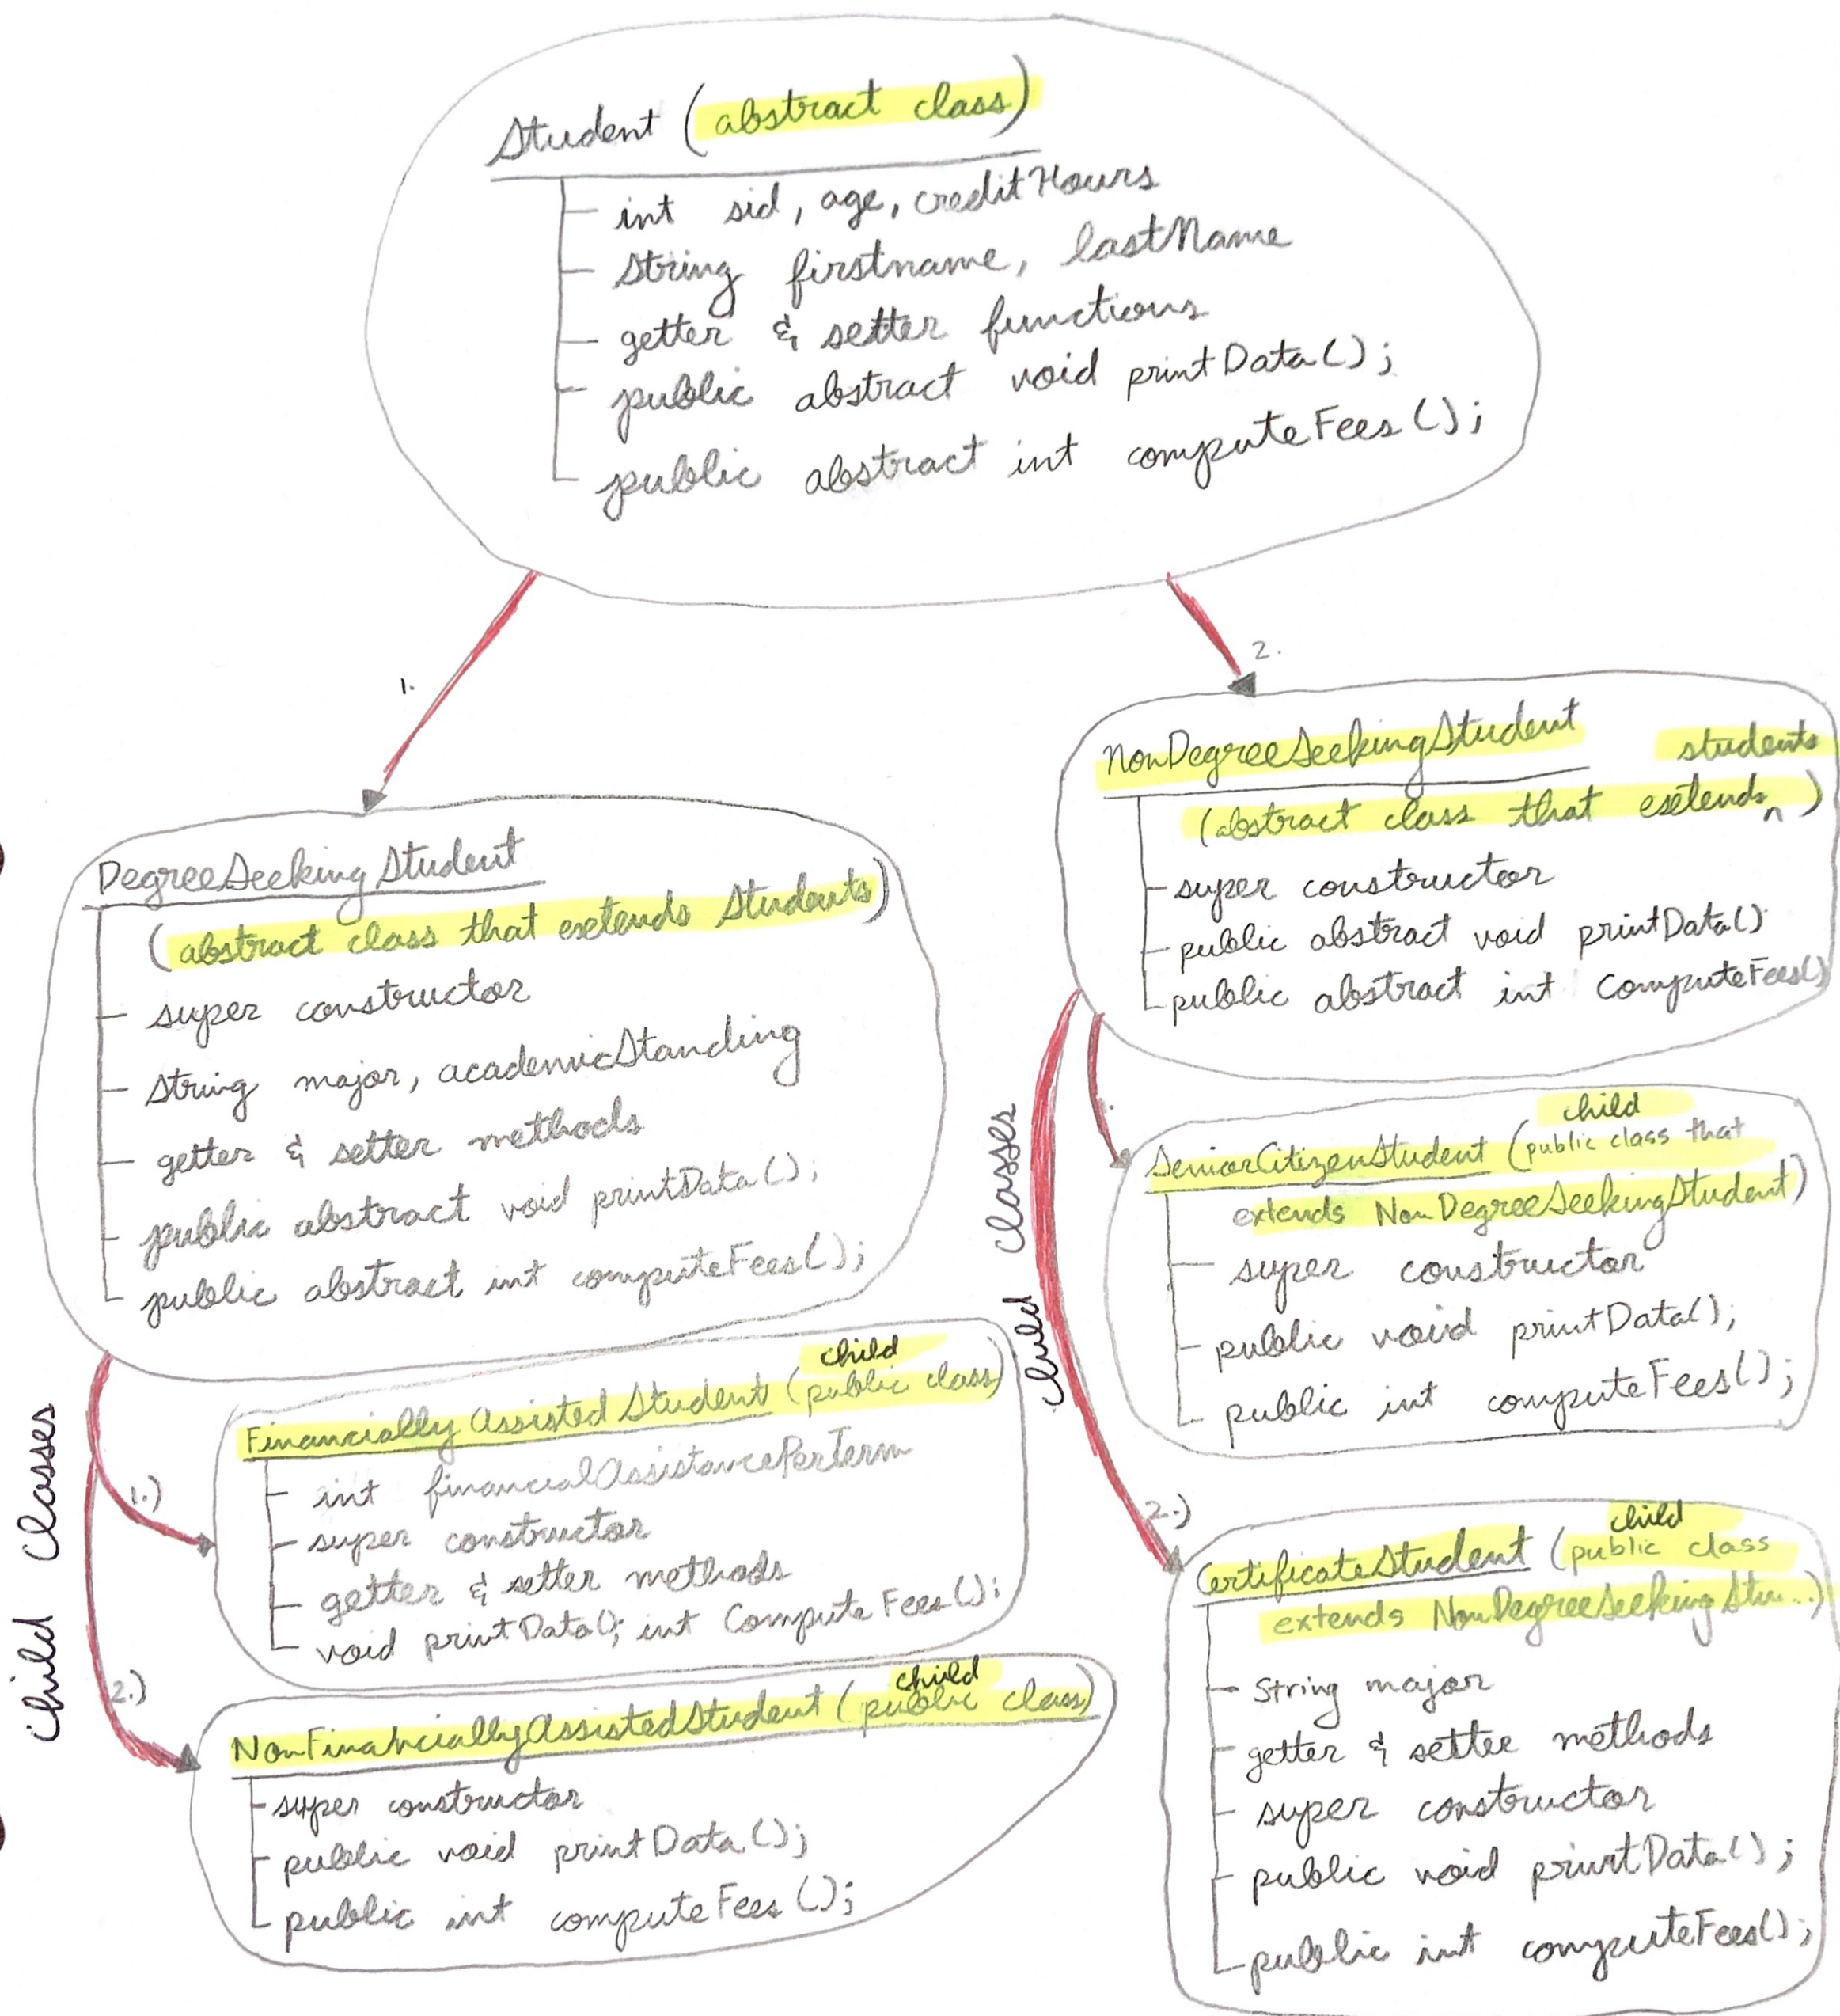 Student (abstract class)
int sid, age, creditHours
String firstname, lastName
getter & setter functions
public abstract void printData();
public abstract int computeFees();
1.
2.
DegreeSeekingStudent
(abstract class that extends Students)
super constructor
String major, academicStanding
getter & setter methods
public abstract void printData();
public abstract int computeFees();
child classes
1.)
child
FinanciallyAssistedStudent (public class)
int financialAssistancePerTerm
super constructor
getter & setter methods
void printData(); int ComputeFees();
2.)
child
NonFinanciallyAssistedStudent (public class)
super constructor
public void printData();
public int computeFees();
NonDegreeSeekingStudent
students
(abstract class that extends ^ )
super constructor
public abstract void printData()
public abstract int ComputeFees()
child classes
1.
child
SeniorCitizenStudent (public class that
extends NonDegreeSeekingStudent)
super constructor
public void printData();
public int computeFees();
2.)
child
CertificateStudent (public class
extends NonDegreeSeeking Stu...)
String major
getter & setter methods
super constructor
public void printData();
public int computeFees();